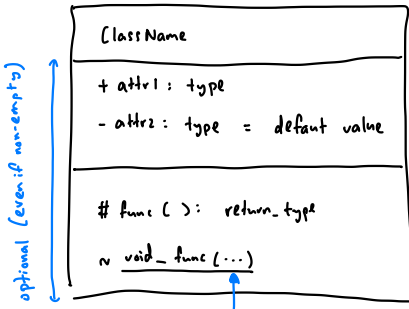 ClassName
+ attr1 : type
- attr2 : type = defaut value
# func ( ) : return_type
~ void_func (...)
optional (even if non-empty)